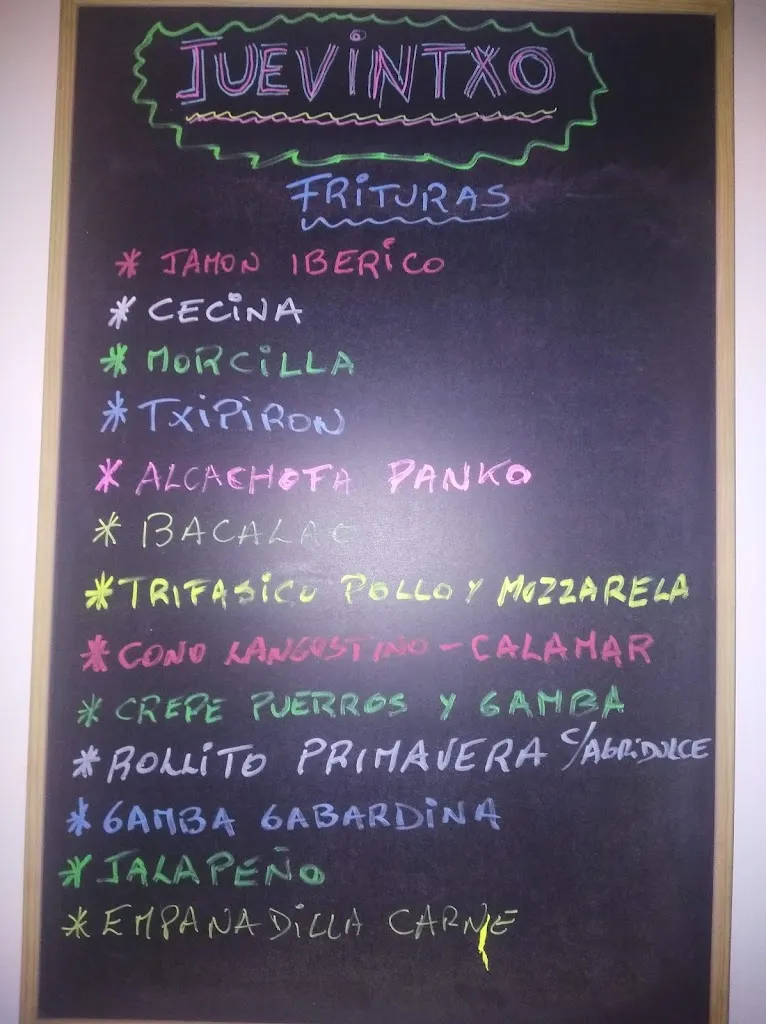 JUEVINTXO
FRITURAS
* JAMON IBERICO
* CECINA
* MORCILLA
* TXIPIRON
* ALCACHOFA PANKO
* BACALAO
* TRIFASICO POLLO Y MOZZARELA
* CONO LANGOSTINO - CALAMAR
* CREPE PUERROS Y GAMBA
* ROLLITO PRIMAVERA C/AGRIDULCE
* GAMBA GABARDINA
* JALAPEÑO
* EMPANADILLA CARNE